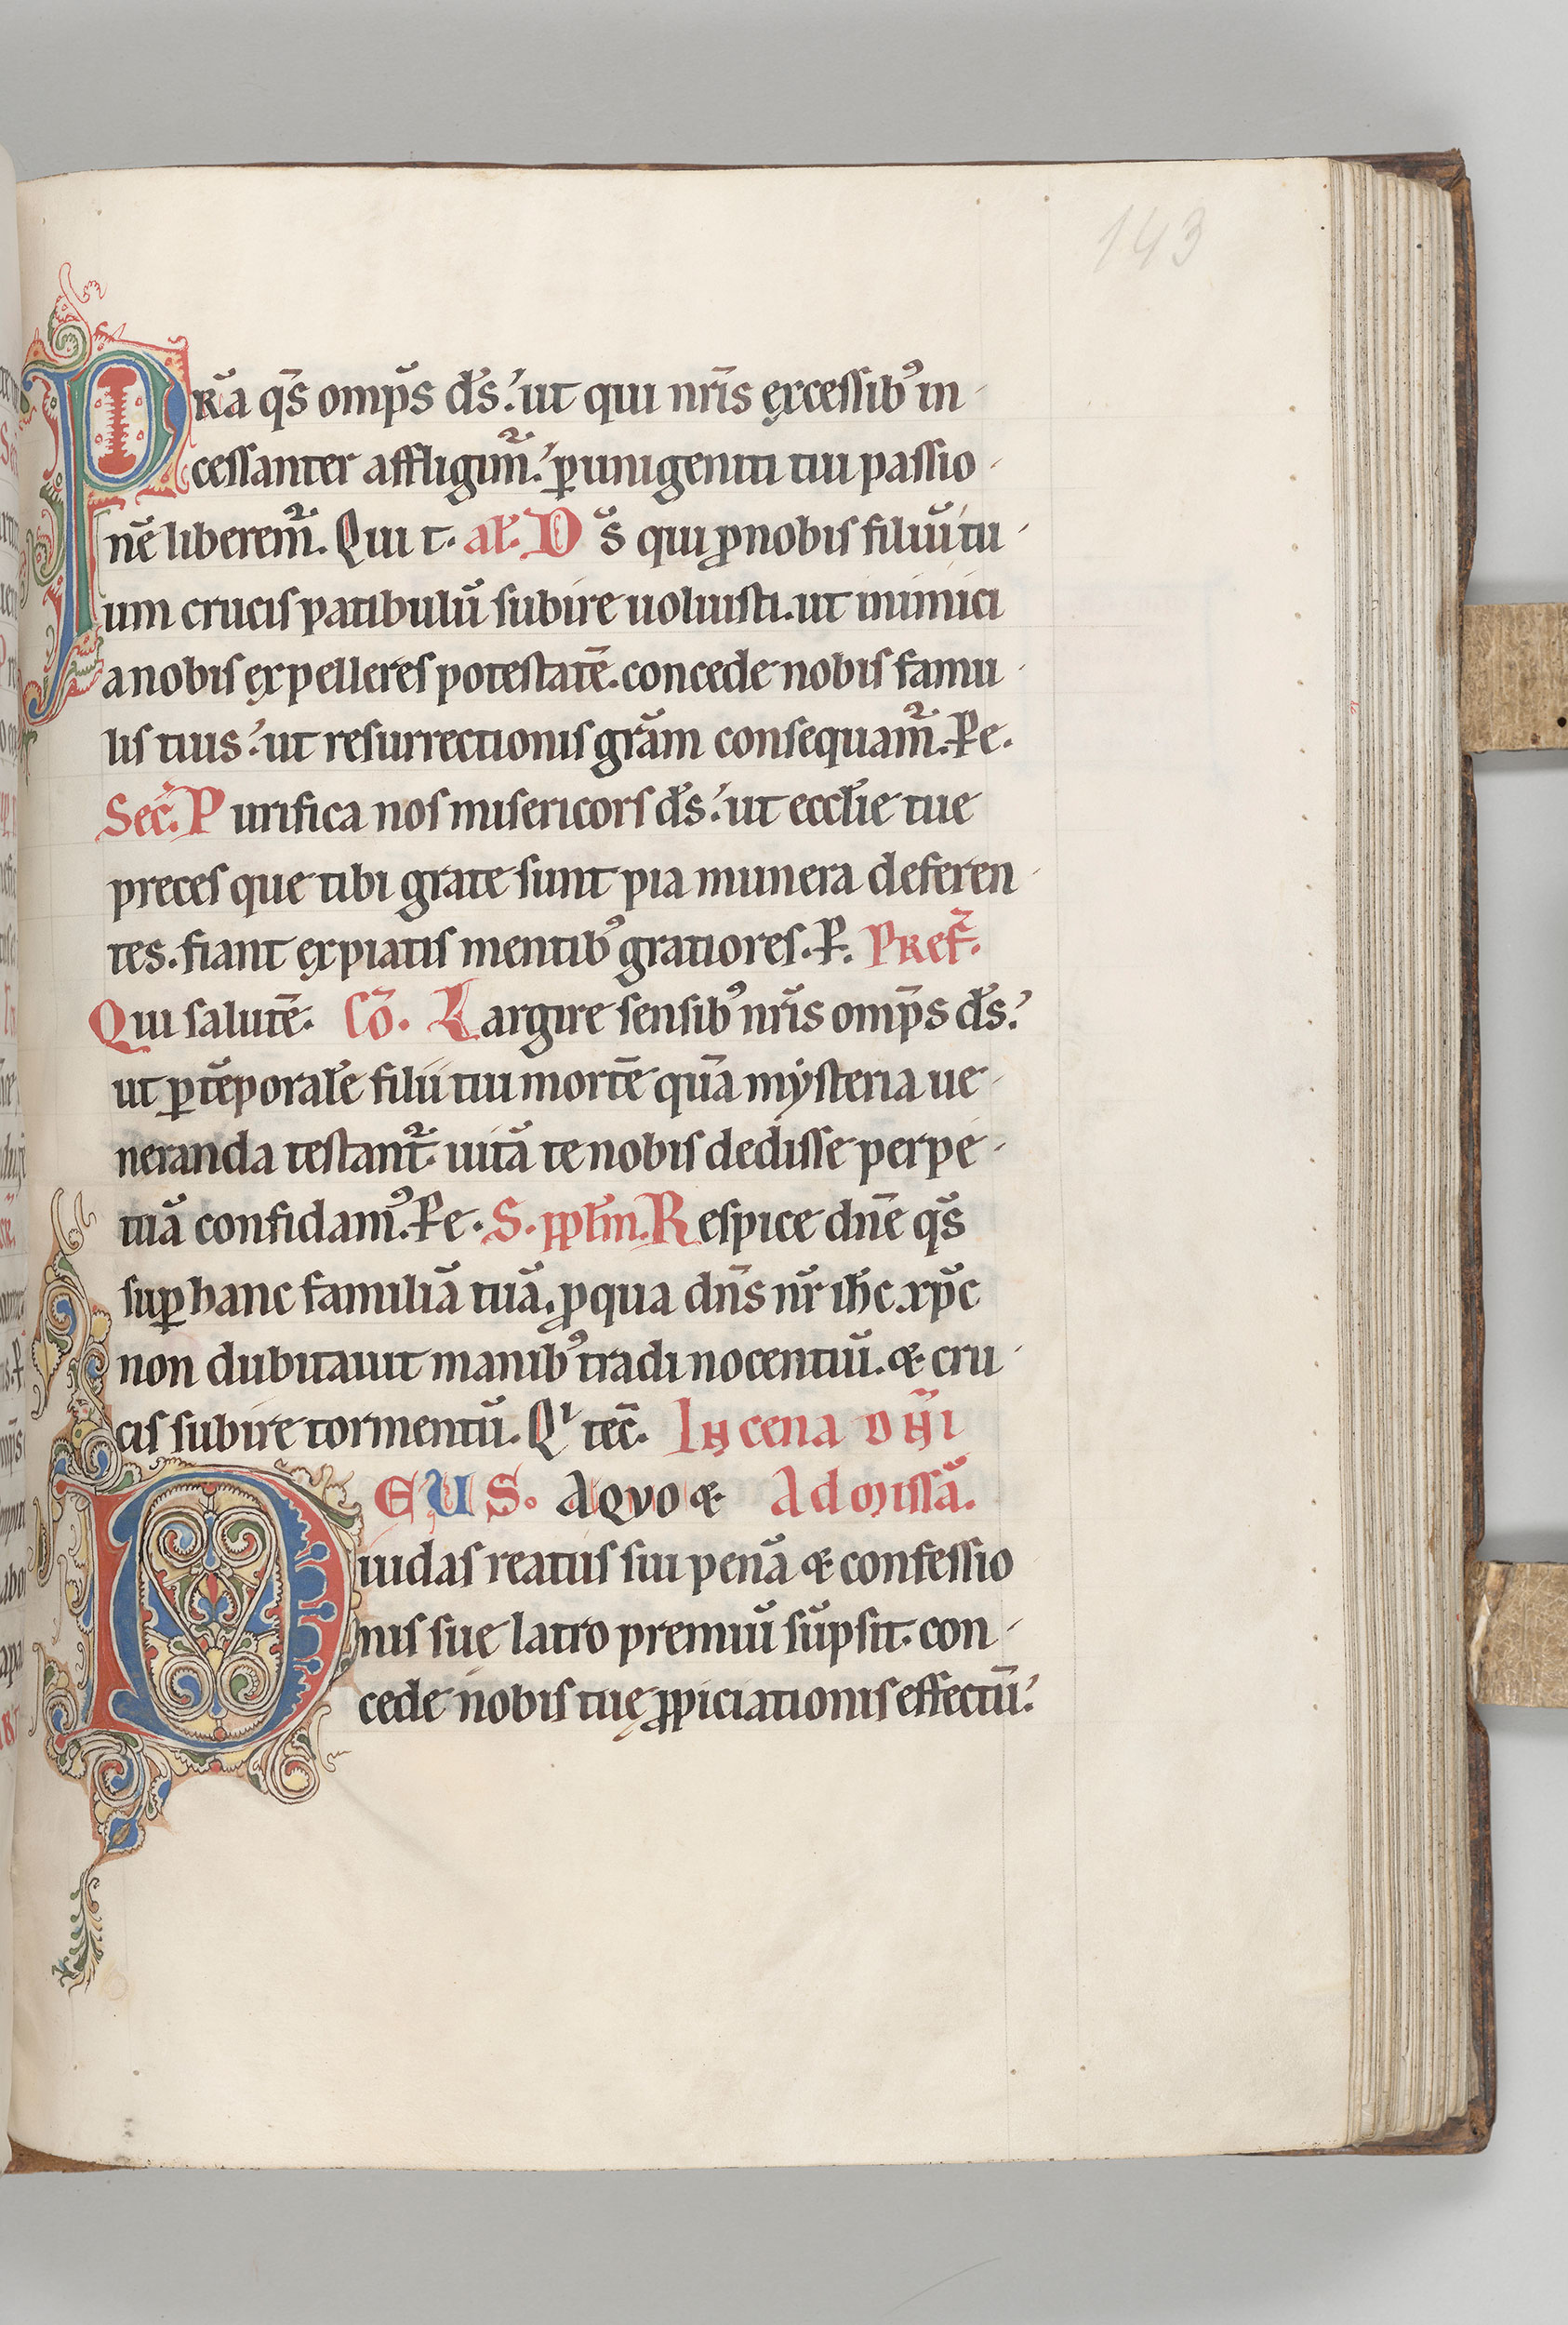 143
PRa᷑ q̄s omp̄s ds᷑. ut qui nr̄is ęxcessib᾽ in-
cessanter affligim̃. ꝑ unigeniti tui passio-
nē liberem̃. Qui t. al. D s᷑ qui ꝓ nobis filiū tu-
um crucis patibulū subire uoluisti. ut inimici
a nobis ęxpelleres potestatē. concede nobis famu-
lis tuis. ut resurrectionis grām consequam̃. P̵e.
Sec̄. Purifica nos misericors ds᷑. ut eccl̄ie tue
preces que tibi grate sunt pia munera deferen-
tes. fiant ęxpiatis mentib᾽ gratiores. P̵. Pref̄.
Qui salutē. Cō. Largire sensib᾽ nr̄is omp̄s ds᷑.
ut ꝑ tēporal̄e filii tui mortē quā mẏsteria ue-
neranda testant̃. uitā te nobis dedisse perpe-
tuā confidam᾽. P̵e. S. ppl̄m. Respice dn̄e q̄s
suꝑ hanc familiā tuā. ꝓ qua dn̄s nr̄ ih̄c xp̄c
non dubitauit manib᾽ tradi nocentiū. & cru-
cis subire tormentū. Qⁱ tec̄. In cena dn̄i
DEUS. A quo & Ad missā.
iudas reatus sui penā & confessio
nis suę latro premiū sūpsit. con-
cede nobis tuę ꝓpiciationis effectū.